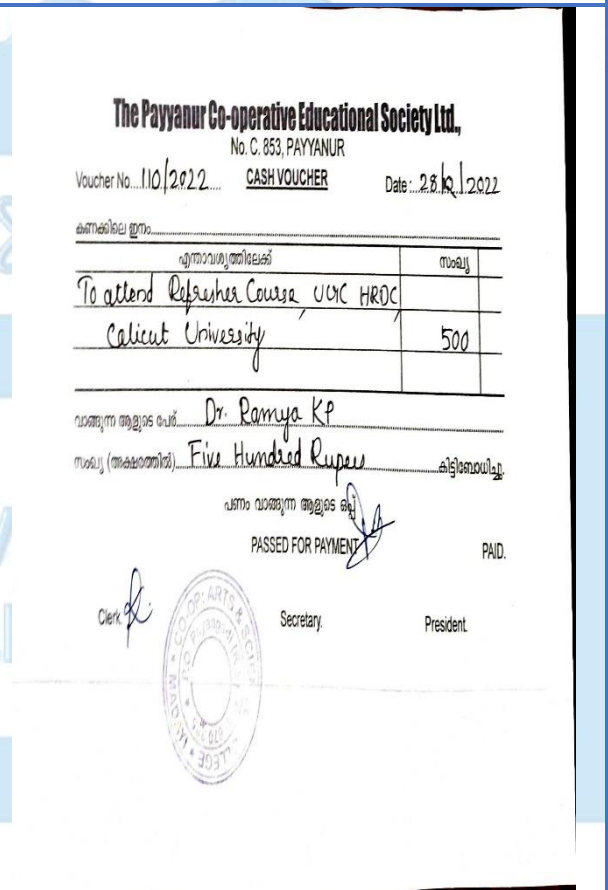 The Payyanur Co-operative Educational Society Ltd.,
No. C. 853, PAYYANUR
Voucher No....110/2022.... CASH VOUCHER Date :...28/12/2022
കണക്കിലെ ഇനം
എന്താവശ്യത്തിലേക്ക് സംഖ്യ
To attend Refresher Course, UGC HRDC,
Calicut University 500
വാങ്ങുന്ന ആളുടെ പേര് Dr. Ramya KP
സംഖ്യ (അക്ഷരത്തിൽ) Five Hundred Rupees കിട്ടിബോധിച്ചു.
പണം വാങ്ങുന്ന ആളുടെ ഒപ്പ്
PASSED FOR PAYMENT PAID.
Clerk Secretary. President.
CO-OP: ARTS & COLLEGE